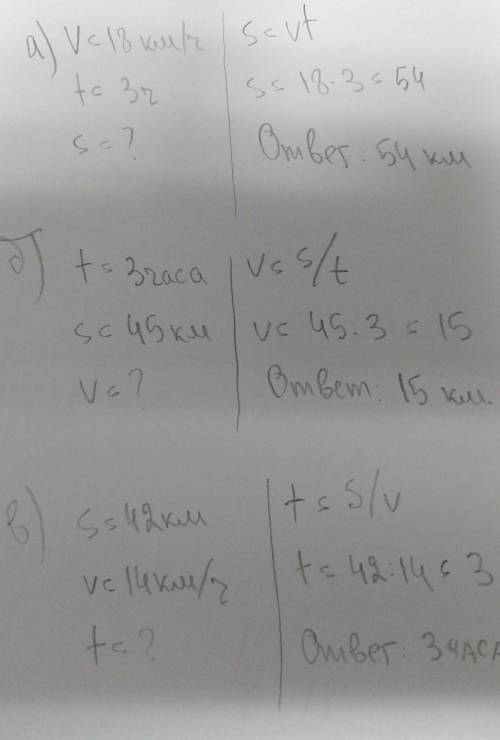 а) V = 18 км/ч
t = 3ч
s = ?
s = vt
s = 18·3 = 54
Ответ: 54 км
б) t = 3 часа
s = 45 км
v = ?
v = s/t
v = 45:3 = 15
Ответ: 15 км.
в) s = 42 км
v = 14 км/ч
t = ?
t = s/v
t = 42:14 = 3
Ответ: 3 часа